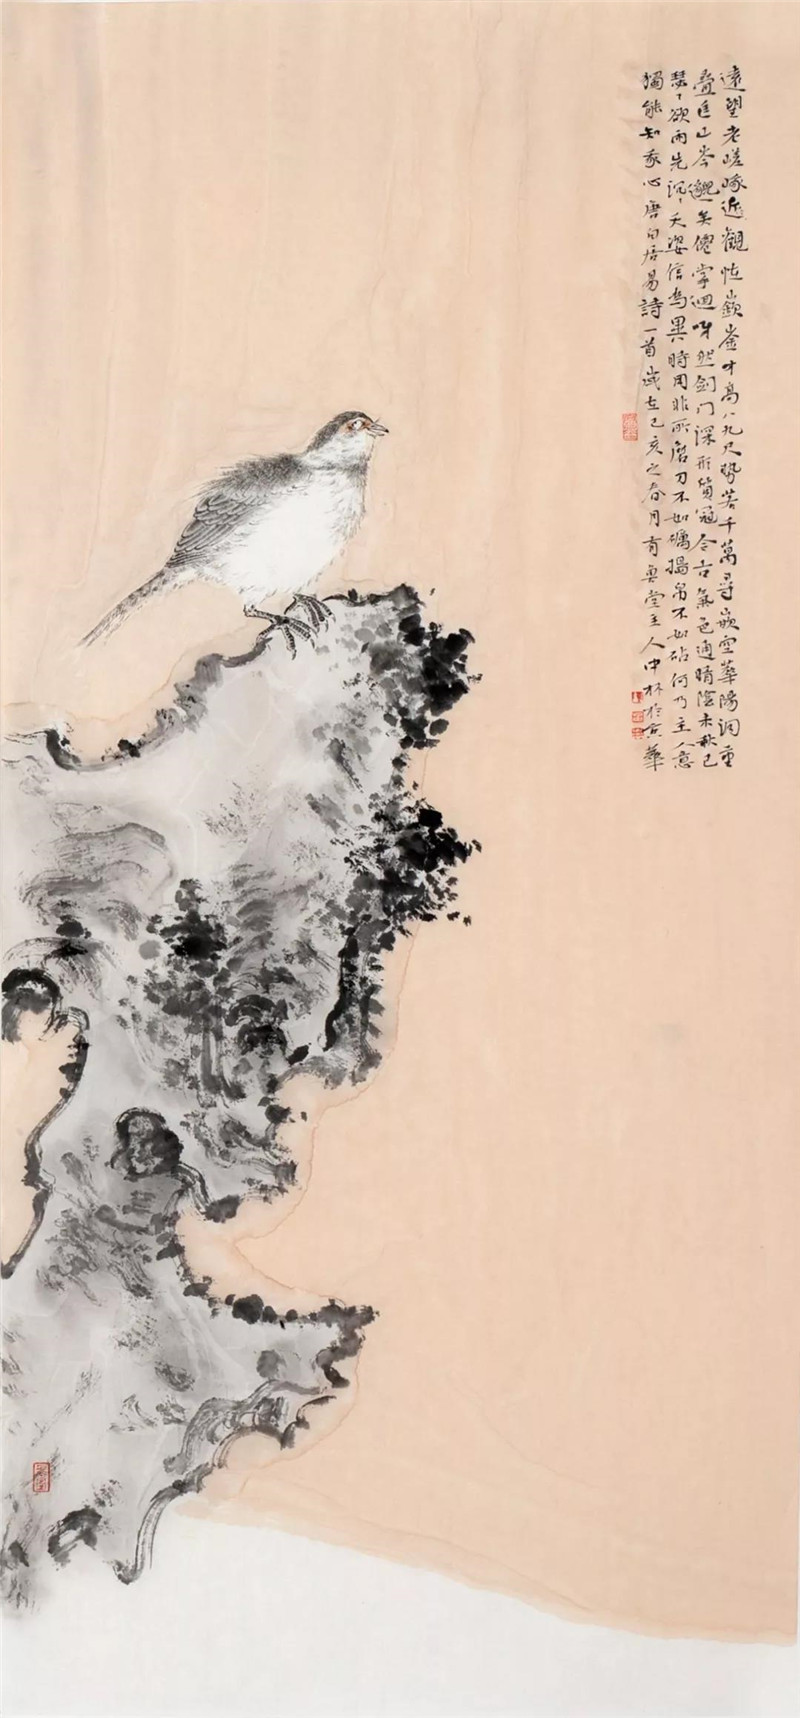 遠望老嵯峨近觀怪嶔崟才高八九尺勢若千萬尋嵌空華陽洞重
疊匡山岑邈矣僊掌迴呀然劍门深形質冠今古氣色通晴陰未秋已
瑟〻欲雨先沉〻天姿信為異時用非所磨刀不如礪搗帛不如砧何乃主人意
獨能知我心唐白居易詩一首歲在己亥之春月堂主人中林於京華